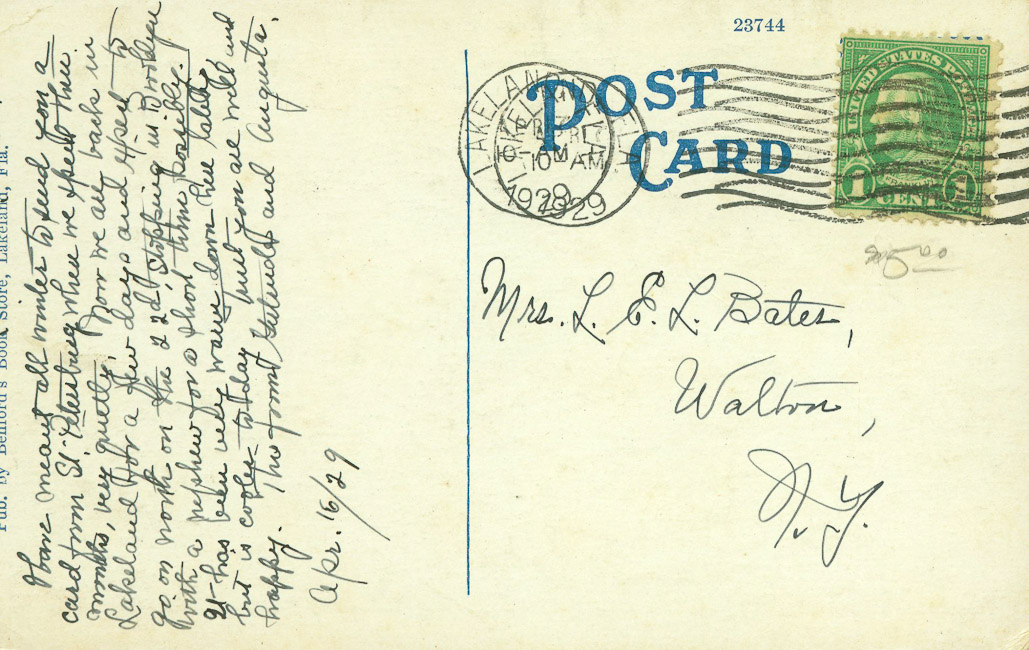 Have meant all winter to send you a
card from St. Petersburg when we spent three
months, very quietly. Now we are back in
Lakeland for a few days and expect to
go on north on the 22d, stopping in Brooklyn
with a nephew for a short time possibly.
It has been very warm down here lately
but is cooler today. Trust you are well and
happy. Gertrude and Augusta.
Apr. 16/29
Pub. by Benford's Book Store, Lakeland, Fla.
23744
POST
CARD
LAKELAND
FLA
10 AM
1929
1929
UNITED STATES
1 CENT 1
Mrs. L. E. L. Bates,
Walton,
N.Y.